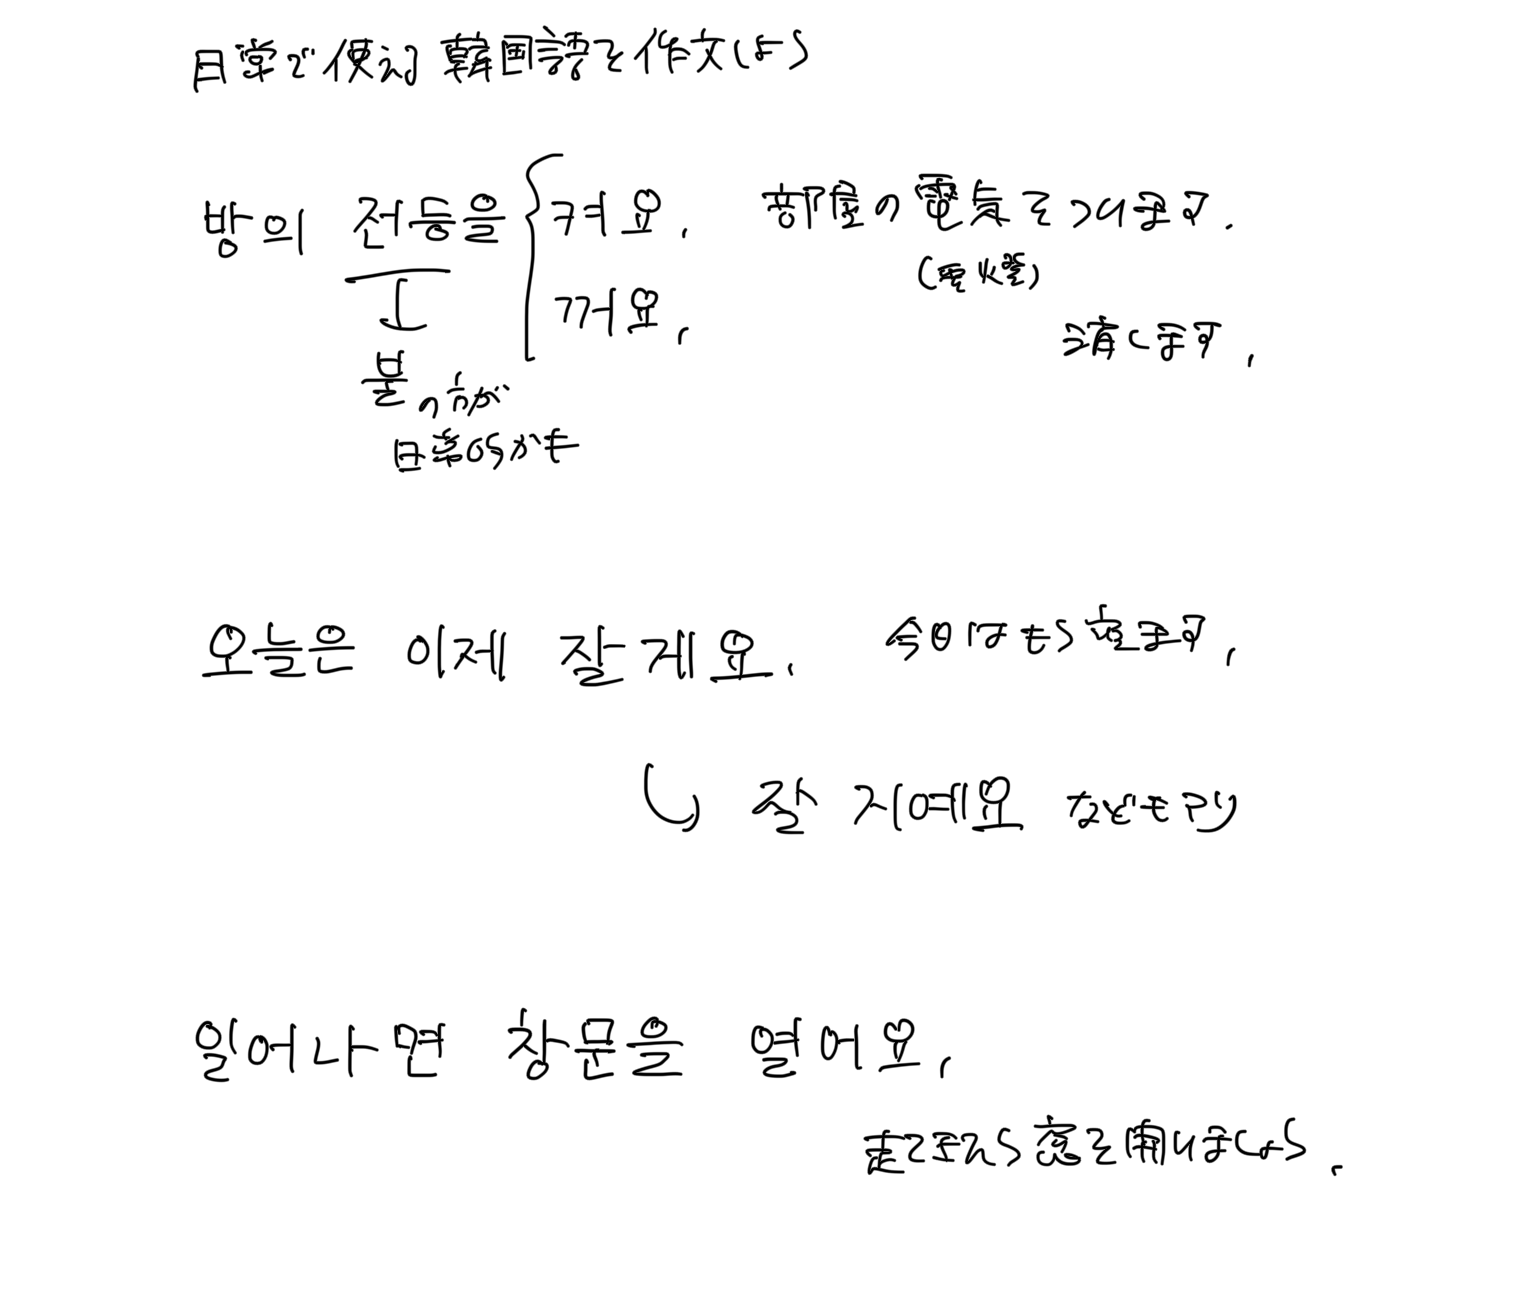 日常で使える韓国語を作文しよう
방의 전등을 켜요. 部屋の電気をつけます.
(電灯)
꺼요. 消します.
불の方が
日常的かも
오늘은 이제 잘게요. 今日はもう寝ます.
잘 지예요 などもアリ
일어나면 창문을 열어요.
起きたら窓を開けましょう.